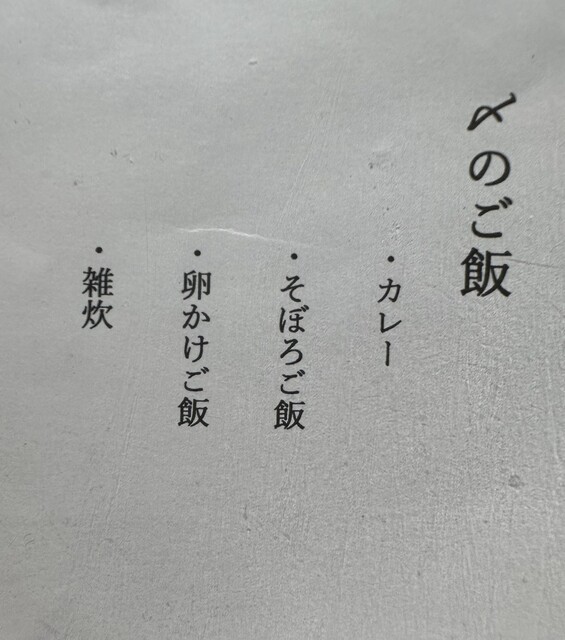 〆のご飯
・カレー
・そぼろご飯
・卵かけご飯
・雑炊